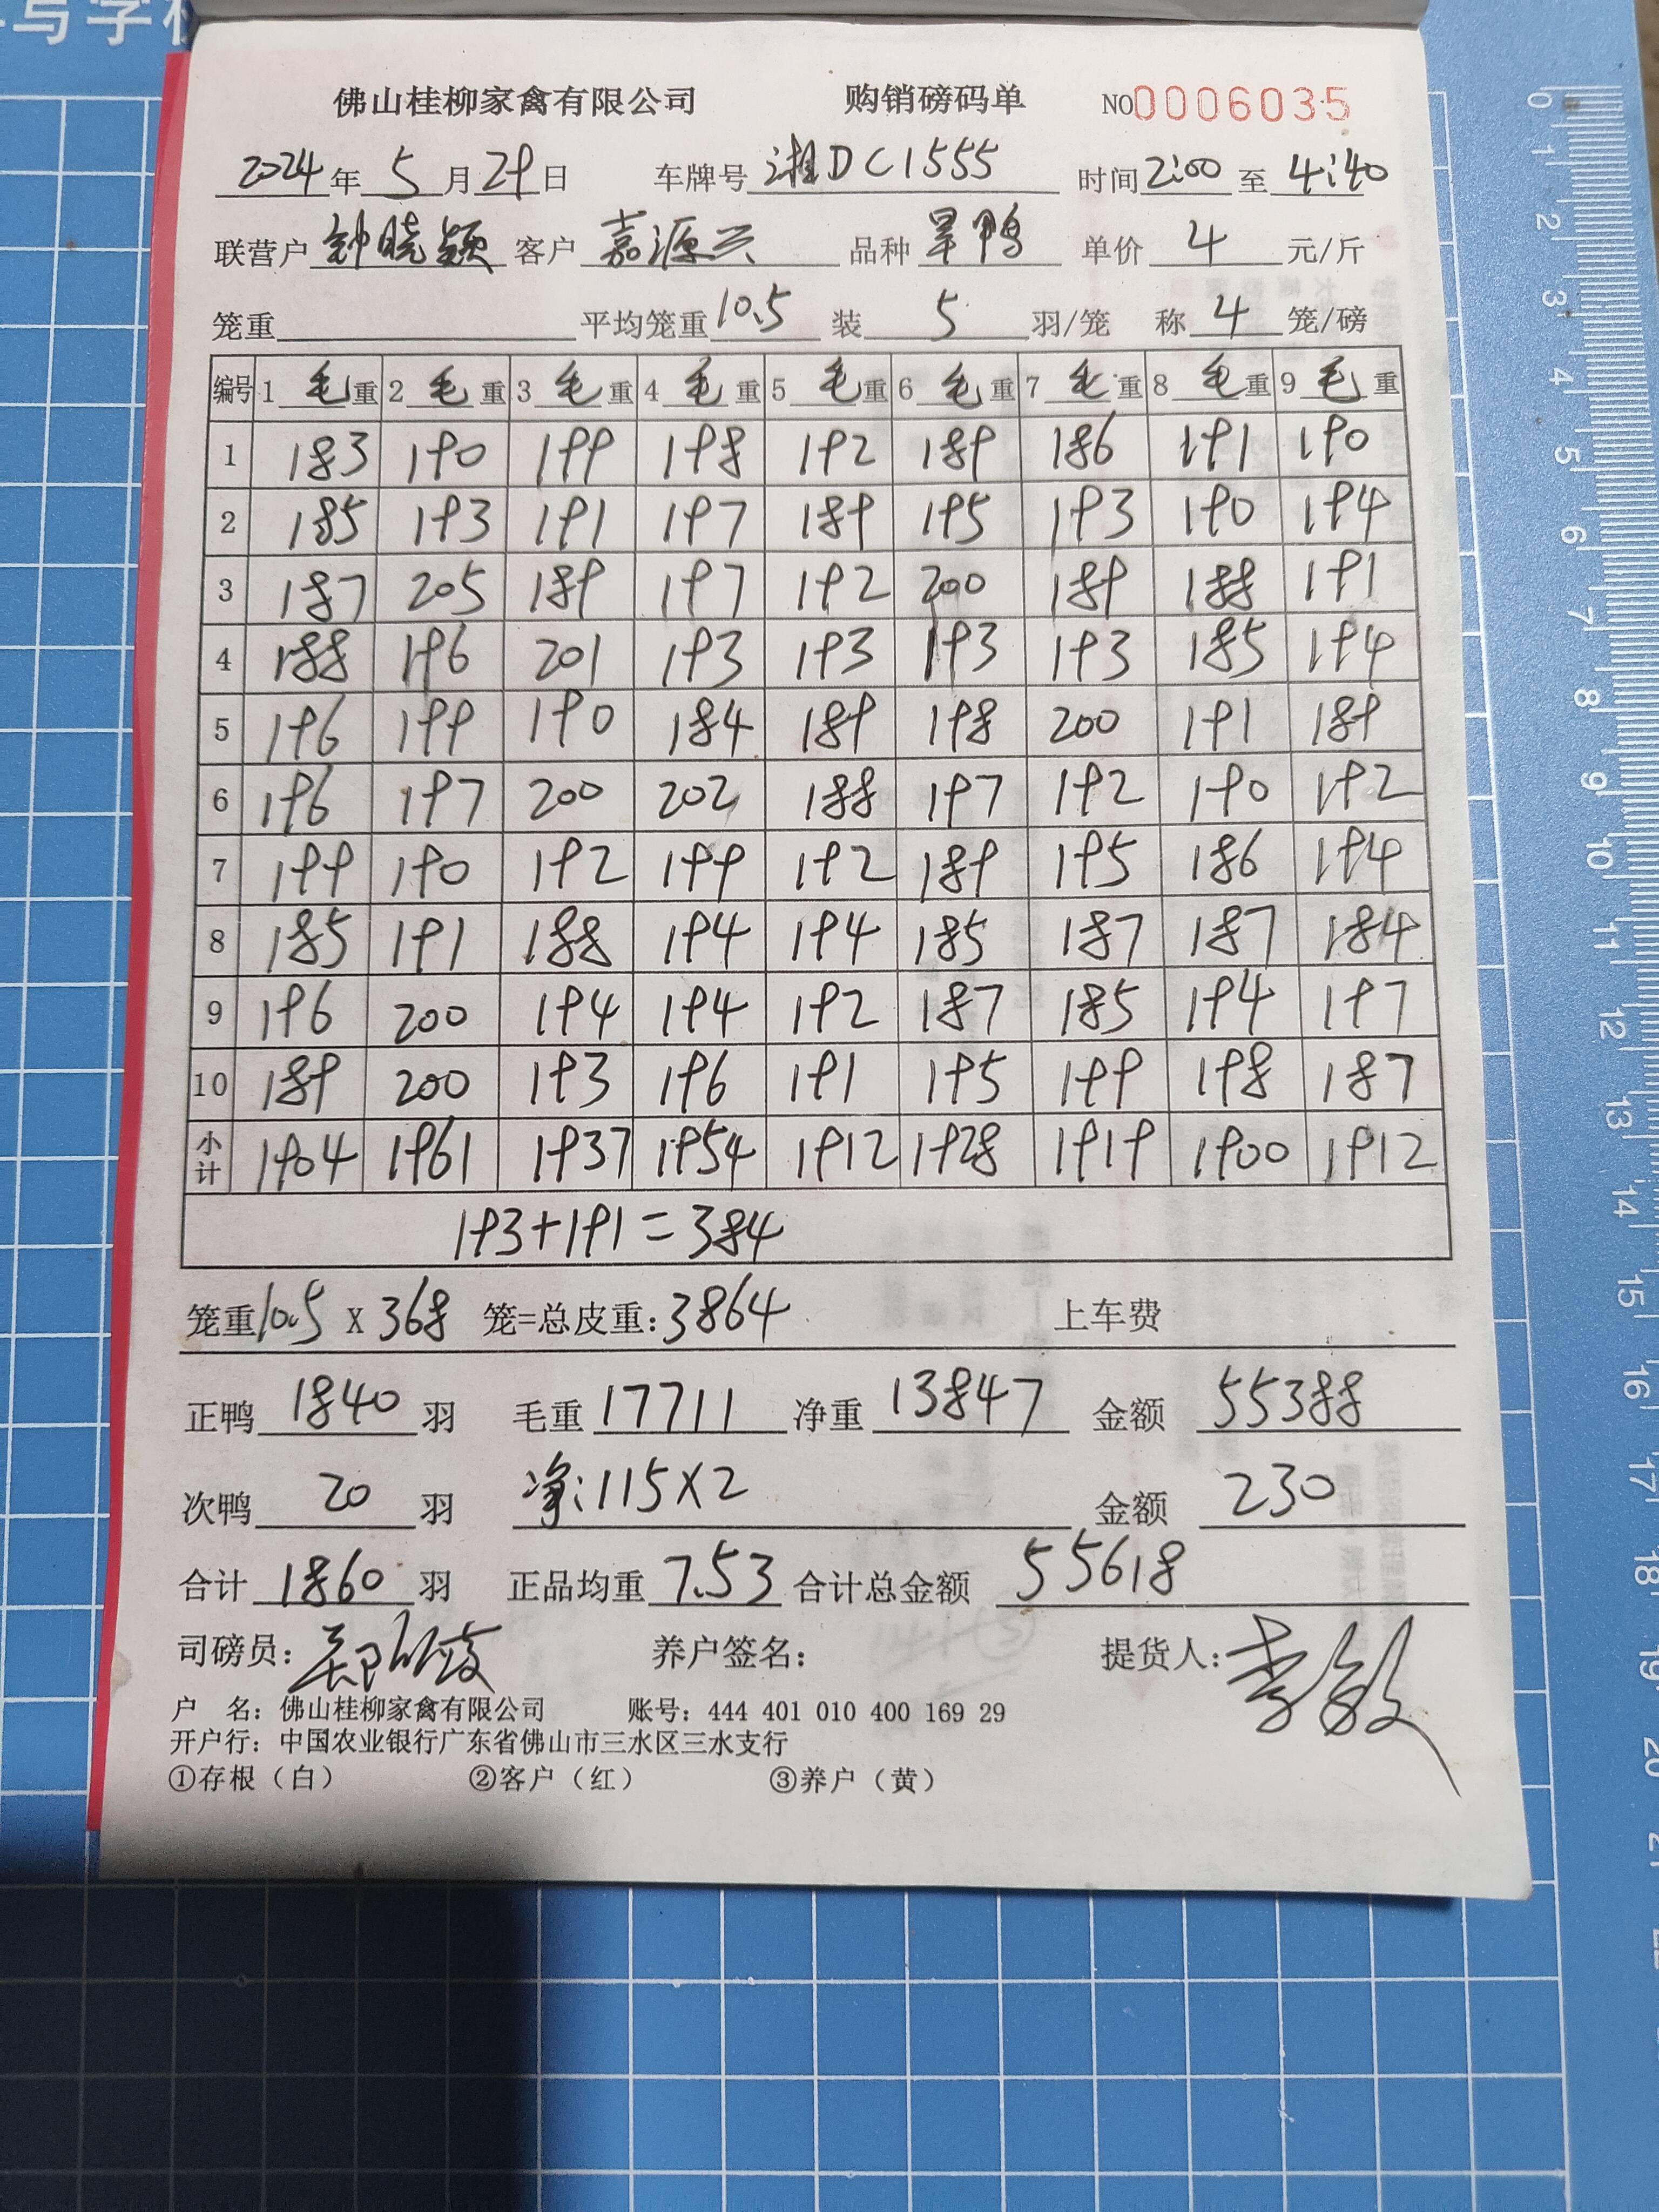 写学校
佛山桂柳家禽有限公司 购销磅码单 NO0006035
2024年5月29日 车牌号 湘DC1555 时间2:00至4:40
联营户 钟晓颖 客户 嘉源兴 品种 旱鸭 单价 4 元/斤
笼重 平均笼重10.5 装 5 羽/笼 称 4 笼/磅
编号 1 毛重 2 毛重 3 毛重 4 毛重 5 毛重 6 毛重 7 毛重 8 毛重 9 毛重
1 183 190 199 198 192 189 186 191 190
2 185 193 191 197 189 195 193 190 194
3 187 205 189 197 192 200 189 188 191
4 188 196 201 193 193 193 193 185 194
5 196 199 190 184 189 198 200 191 189
6 196 197 200 202 188 197 192 190 192
7 199 190 192 199 192 189 195 186 194
8 185 191 188 194 194 185 187 187 184
9 196 200 194 194 192 187 185 194 197
10 189 200 193 196 191 195 199 198 187
小计 1904 1961 1937 1954 1912 1928 1919 1900 1912
193+191=384
笼重10.5 X 368 笼=总皮重:3864 上车费
正鸭 1840 羽 毛重 17711 净重 13847 金额 55388
次鸭 20 羽 净:115X2 金额 230
合计 1860 羽 正品均重 7.53 合计总金额 55618
司磅员: 养户签名: 提货人:李敏
户 名: 佛山桂柳家禽有限公司 账号: 444 401 010 400 169 29
开户行: 中国农业银行广东省佛山市三水区三水支行
①存根（白） ②客户（红） ③养户（黄）
0
1
2
3
4
5
6
7
8
9
10
11
12
13
14
15
16
17
18
19
20
21